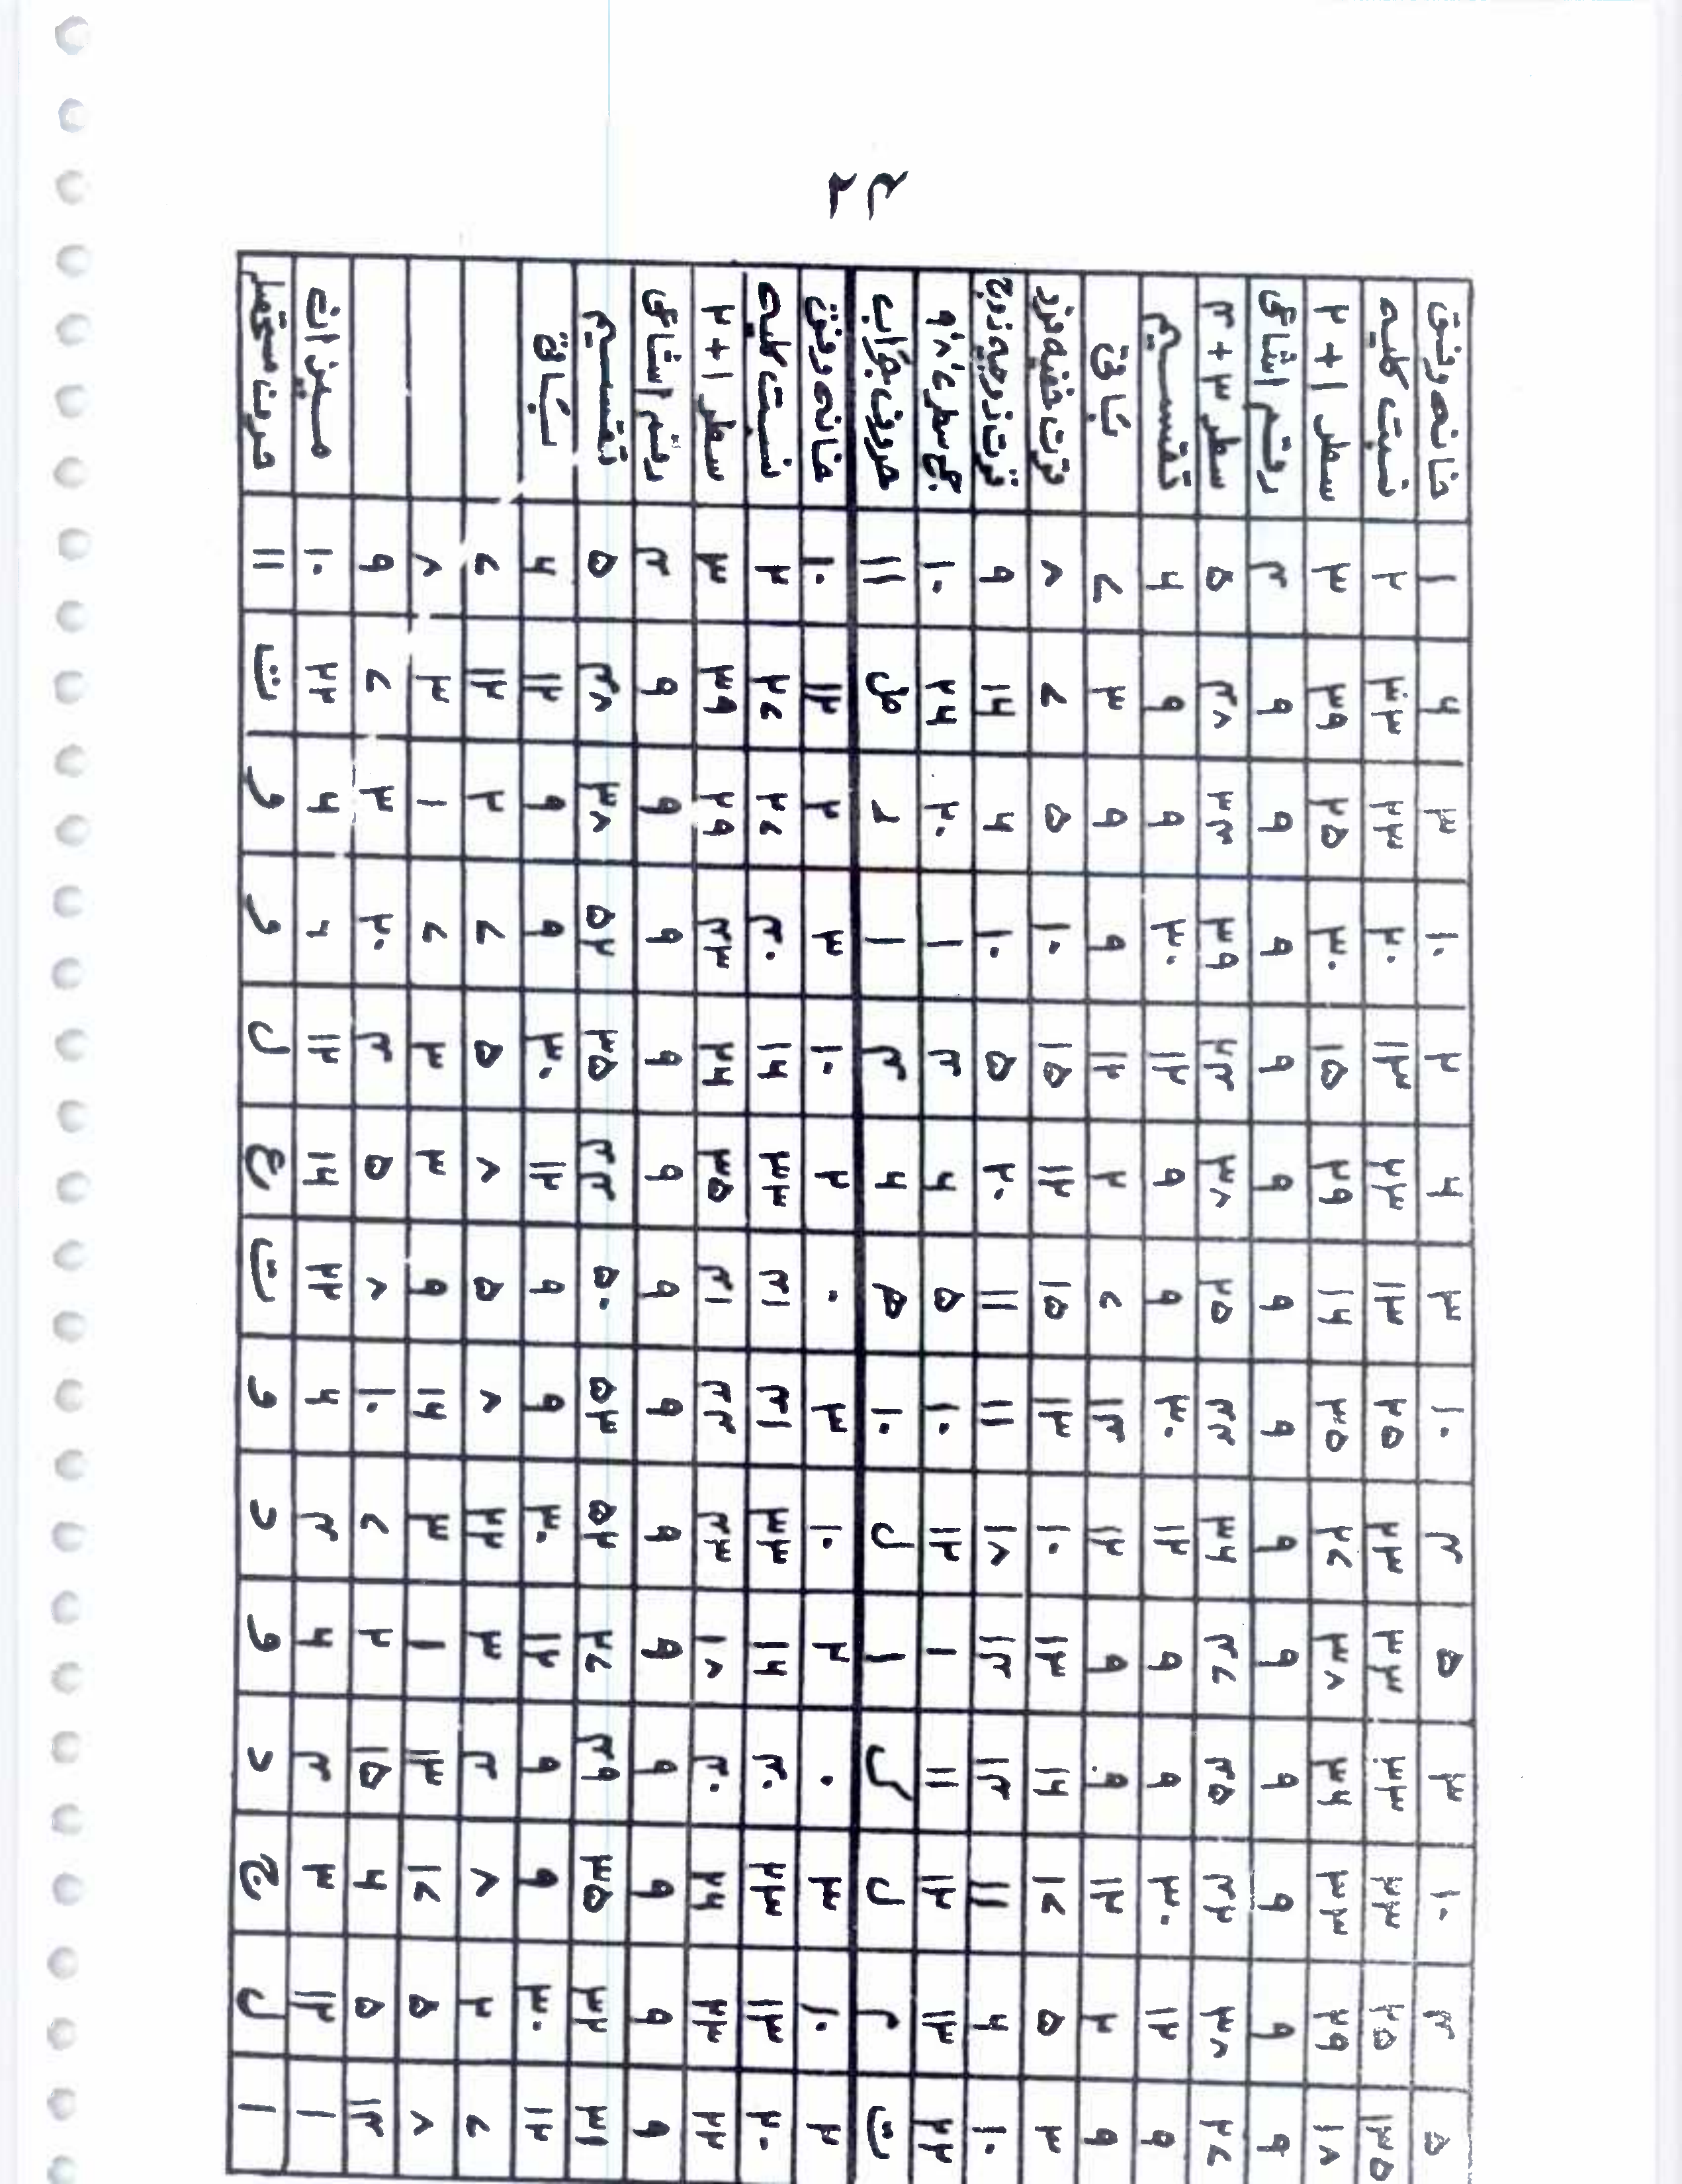 ۴۲
خانہ وفق ۱ ۶ ۳ ۱۰ ۲ ۶ ۳ ۱۰ ۴ ۵ ۳ ۱۰ ۴ ۵
نسبت کلیہ ۲ ۳۳ ۲۲ ۲۰ ۱۳ ۲۳ ۱۳ ۲۵ ۲۳ ۳۳ ۳۳ ۲۳ ۲۵ ۱۳
سطر ۱+۲ ۳ ۳۹ ۲۵ ۳۰ ۱۵ ۲۹ ۱۶ ۳۵ ۲۷ ۳۸ ۳۶ ۳۳ ۲۹ ۱۸
رقم اشاعی ۴ ۹ ۹ ۹ ۹ ۹ ۹ ۹ ۹ ۹ ۹ ۹ ۹ ۹
سطر ۳+۴ ۵ ۴۸ ۳۴ ۳۹ ۲۴ ۳۸ ۲۵ ۴۴ ۳۶ ۴۷ ۴۵ ۴۲ ۳۸ ۲۷
تقسیم ۶ ۹ ۹ ۳۰ ۱۲ ۹ ۹ ۳۰ ۱۲ ۹ ۹ ۳۰ ۱۲ ۹
باقی ۷ ۳ ۹ ۹ ۱۲ ۲ ۷ ۱۴ ۱۲ ۹ ۹ ۱۲ ۲ ۹
قوت خفیہ فرد ۸ ۷ ۵ ۱۰ ۱۵ ۱۲ ۱۵ ۱۳ ۱۰ ۱۳ ۱۶ ۱۷ ۵ ۳
قوت زوجیہ زوج ۹ ۱۶ ۶ ۱۰ ۵ ۲۰ ۱۱ ۱۱ ۱۸ ۱۴ ۱۴ ۱۱ ۶ ۱۰
جمع سطر ۷،۸،۹ ۱۰ ۲۶ ۲۰ ۱ ۴ ۶ ۵ ۱۰ ۱۲ ۱ ۱۱ ۱۲ ۱۳ ۲۲
حروف جواب ۱۱ ض ر ا م ۶ ۵ ۱۰ ل ا ک ل ر ت
خانہ وفق ۱۰ ۱۲ ۲ ۳ ۱۰ ۲ ۰ ۳ ۱۰ ۲ ۰ ۳ ۱۰ ۲
نسبت کلیہ ۲ ۲۷ ۲۷ ۴۰ ۱۶ ۳۳ ۴۱ ۴۱ ۳۳ ۱۶ ۴۰ ۲۳ ۱۳ ۲۰
سطر ۱+۲ ۳ ۳۹ ۲۹ ۴۳ ۲۶ ۳۵ ۴۱ ۴۴ ۴۳ ۱۸ ۴۰ ۲۶ ۲۳ ۲۲
رقم اشاعی ۴ ۹ ۹ ۹ ۹ ۹ ۹ ۹ ۹ ۹ ۹ ۹ ۹ ۹
تقسیم ۵ ۴۸ ۳۸ ۵۲ ۳۵ ۴۴ ۵۰ ۵۳ ۵۲ ۲۷ ۴۹ ۳۵ ۳۲ ۳۱
باقی ۶ ۱۲ ۹ ۹ ۳۰ ۱۲ ۹ ۹ ۳۰ ۱۲ ۹ ۹ ۳۰ ۱۲
۷ ۱۲ ۲ ۷ ۵ ۸ ۵ ۸ ۲۲ ۳ ۴ ۸ ۲ ۷
۸ ۳ ۱ ۷ ۳ ۳ ۹ ۱۶ ۳ ۱ ۱۳ ۱۷ ۵ ۸
۹ ۷ ۳ ۲۰ ۴ ۵ ۸ ۱۰ ۷ ۲ ۱۵ ۶ ۵ ۱۴
میزان ۱۰ ۲۲ ۶ ۶ ۱۲ ۱۶ ۲۲ ۶ ۴ ۶ ۴ ۳ ۱۲ ۱
حروف مستحصلہ ۱۱ ت و و ل ع ت و د و د ج ل ا